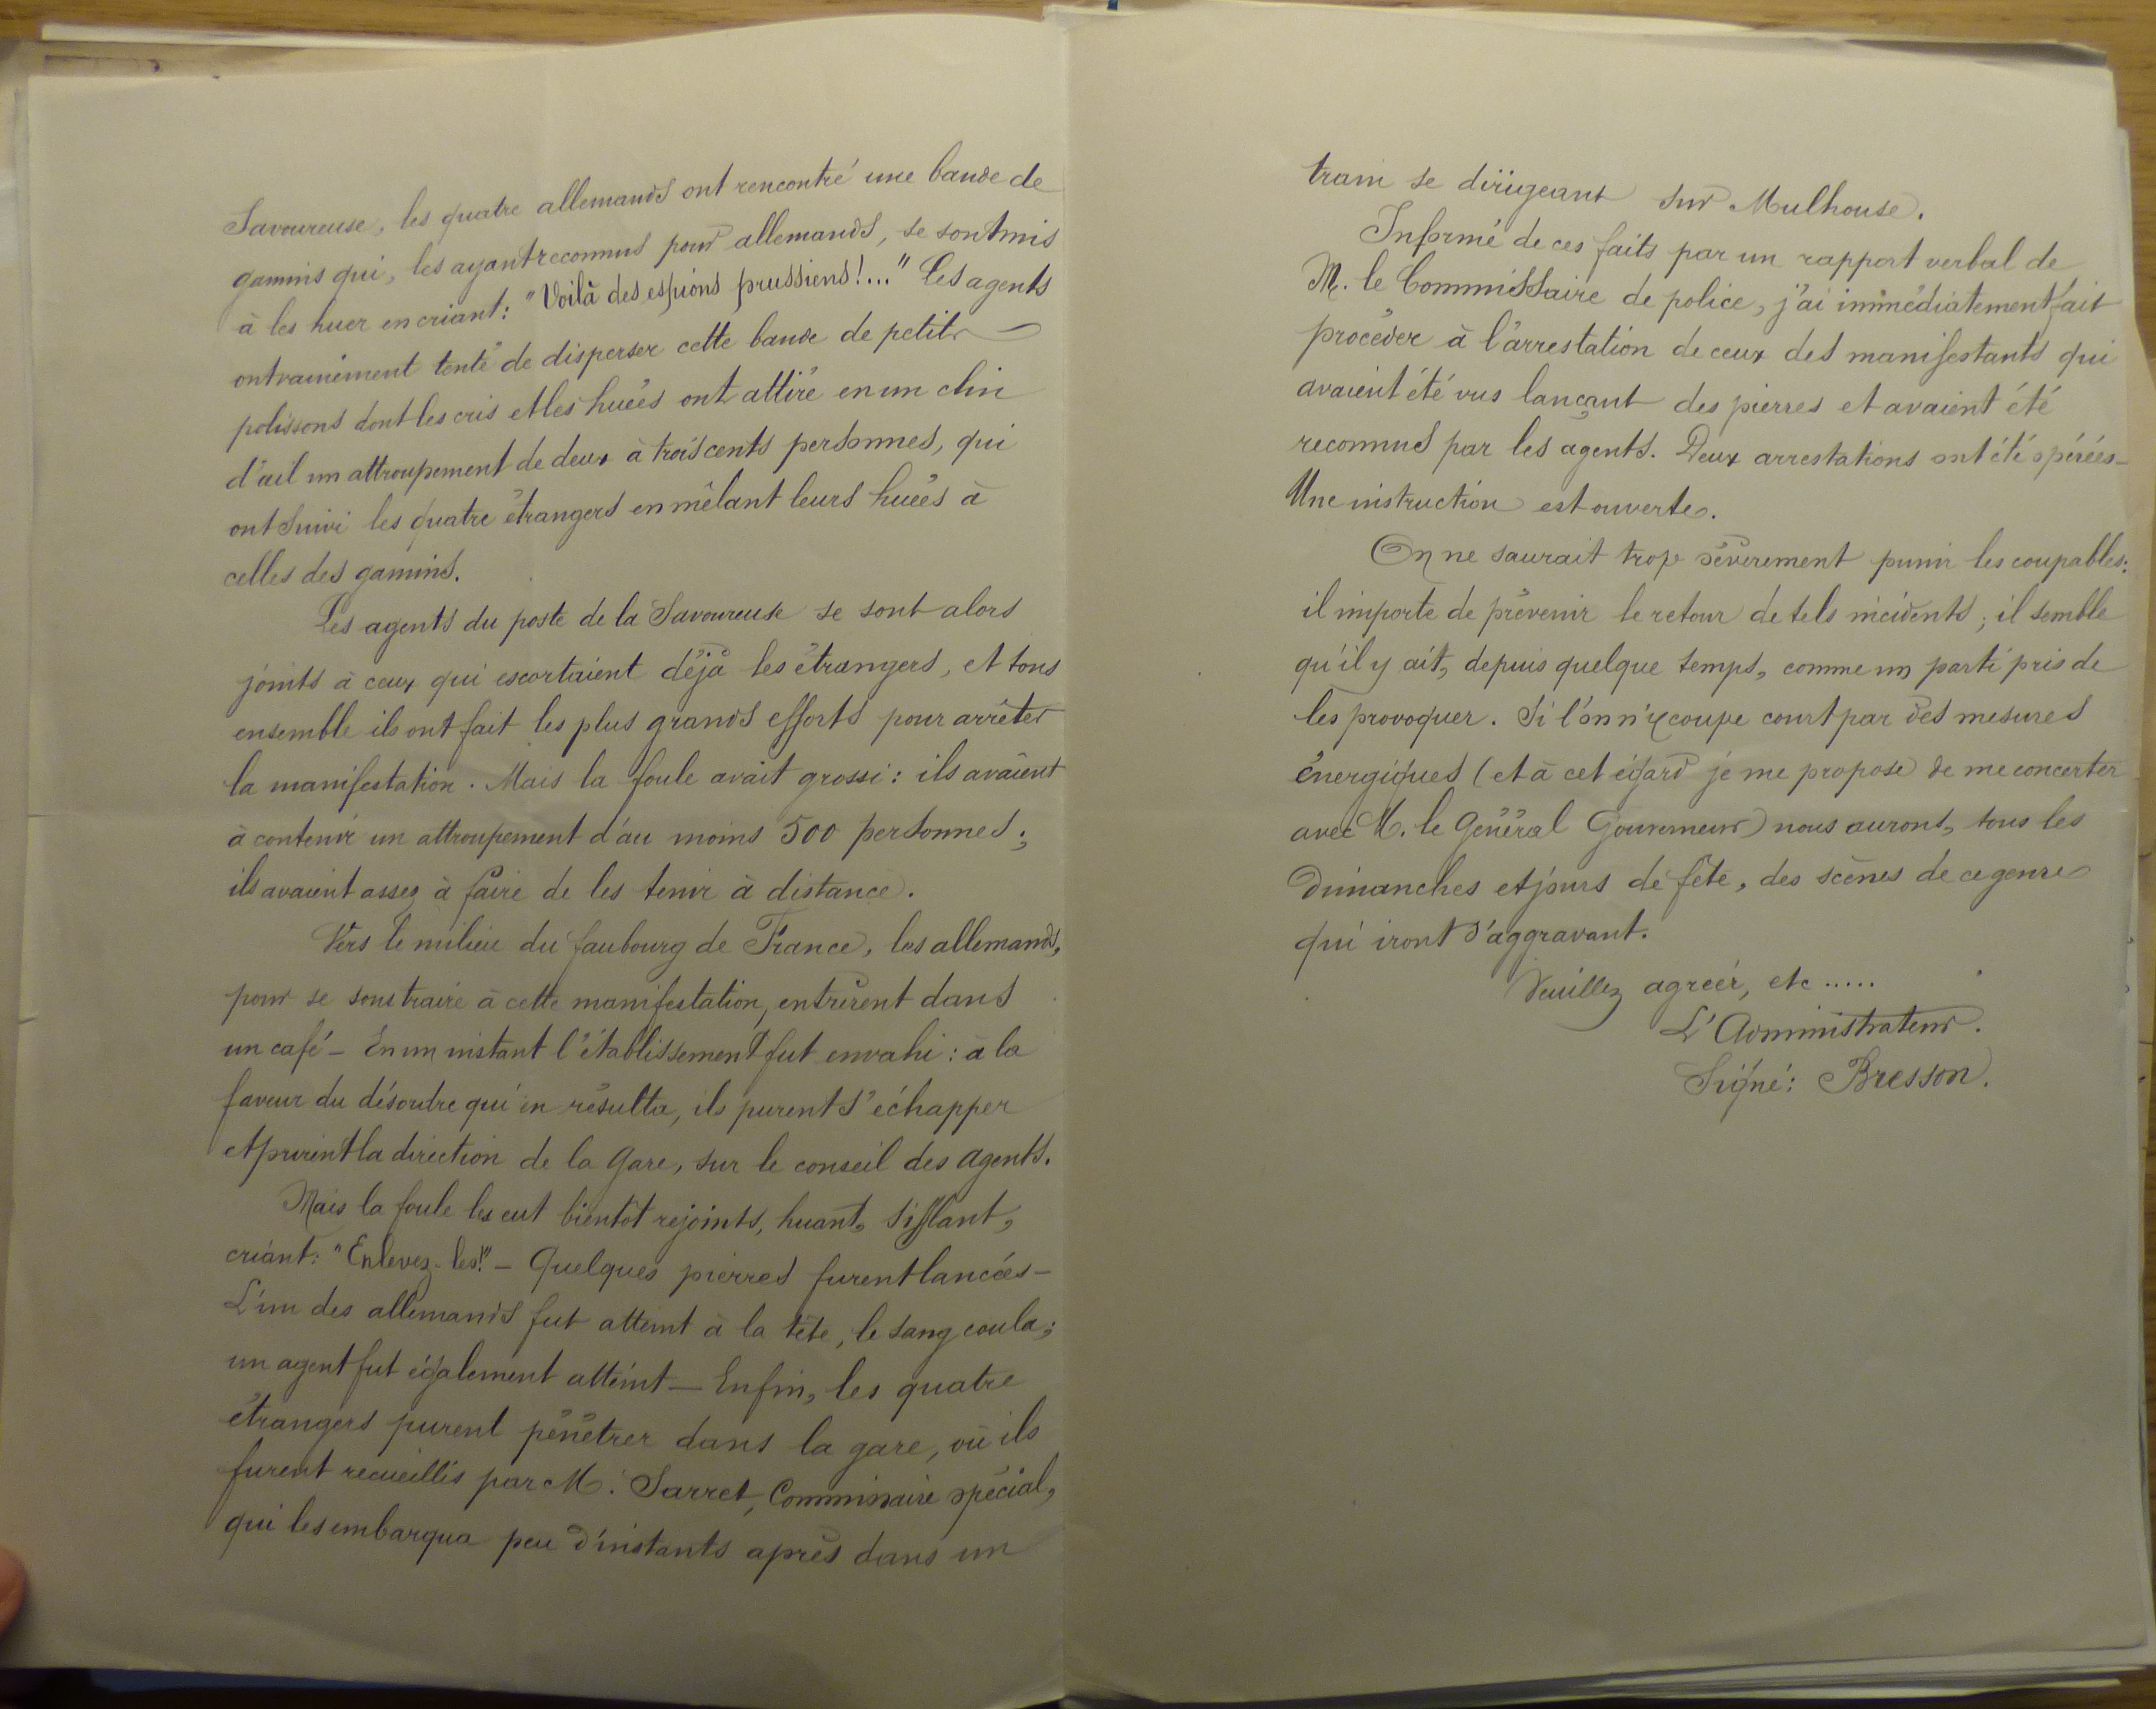 Savoureuse, les quatre allemands ont rencontré une bande de
gamins qui, les ayant reconnus pour allemands, se sont mis
à les huer en criant: "Voilà des espions prussiens!..." Les agents
ont vainement tenté de disperser cette bande de petits
polissons dont les cris et les huées ont attiré en un clin
d'œil un attroupement de deux à trois cents personnes, qui
ont suivi les quatre étrangers en mêlant leurs huées à
celles des gamins.
Les agents du poste de la Savoureuse se sont alors
joints à ceux qui escortaient déjà les étrangers, et tous
ensemble ils ont fait les plus grands efforts pour arrêter
la manifestation. Mais la foule avait grossi: ils avaient
à contenir un attroupement d'au moins 500 personnes;
ils avaient assez à faire de les tenir à distance.
Vers le milieu du faubourg de France, les allemands,
pour se soustraire à cette manifestation, entrèrent dans
un café - En un instant l'établissement fut envahi: à la
faveur du désordre qui en résulta, ils purent s'échapper
et prirent la direction de la Gare, sur le conseil des agents.
Mais la foule les eut bientôt rejoints, huant, sifflant,
criant: "Enlevez-les!" - Quelques pierres furent lancées -
L'un des allemands fut atteint à la tête, le sang coula;
un agent fut également atteint - Enfin, les quatre
étrangers purent pénétrer dans la gare, où ils
furent recueillis par M. Sarret, Commissaire spécial,
qui les embarqua peu d'instants après dans un
train se dirigeant sur Mulhouse.
Informé de ces faits par un rapport verbal de
M. le Commissaire de police, j'ai immédiatement fait
procéder à l'arrestation de ceux des manifestants qui
avaient été vus lançant des pierres et avaient été
reconnus par les agents. Deux arrestations ont été opérées -
Une instruction est ouverte.
On ne saurait trop sévèrement punir les coupables:
il importe de prévenir le retour de tels incidents; il semble
qu'il y ait, depuis quelque temps, comme un parti pris de
les provoquer. Si l'on n'y coupe court par des mesures
énergiques (et à cet égard je me propose de me concerter
avec M. le Général Gouverneur) nous auront, tous les
Dimanches et jours de fête, des scènes de ce genre
qui iront s'aggravant.
Veuillez agréer, etc.....
L'Administrateur.
Signé: Bresson.